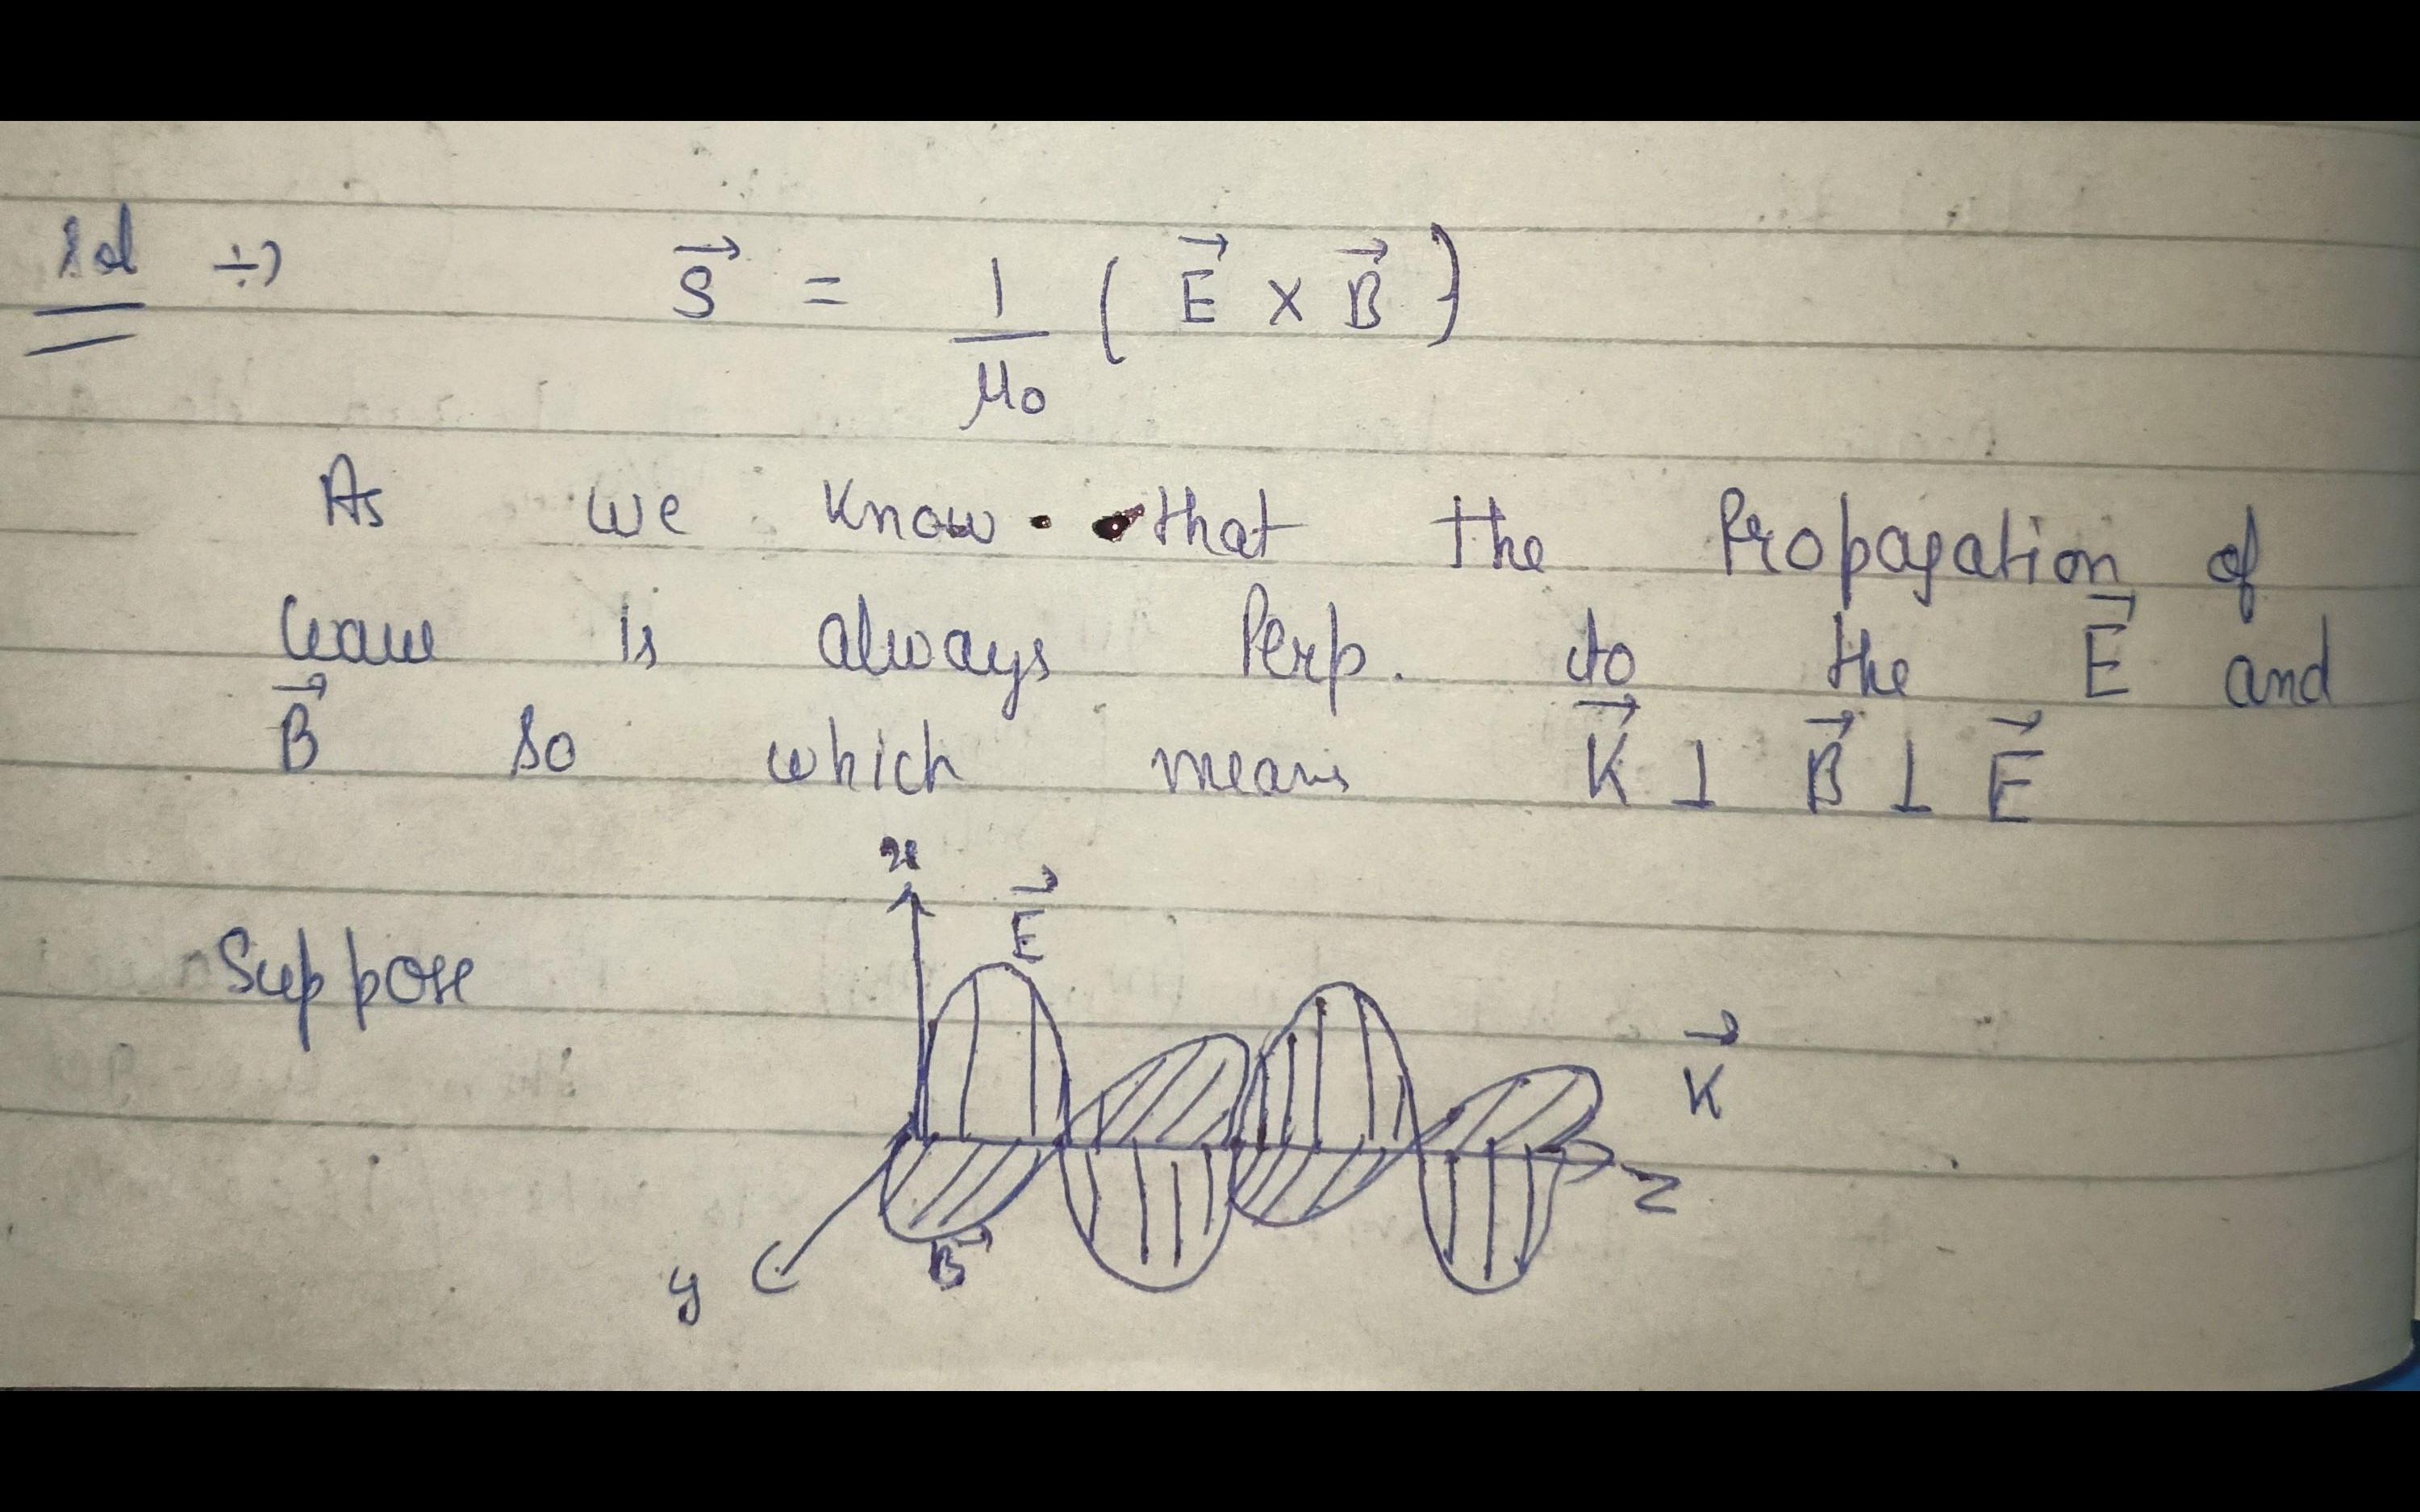 Sol ÷)
S⃗ = 1/μ0 ( E⃗ × B⃗ )
As we know that the Propagation of
wave is always Perp. to the E⃗ and
B⃗ So which means K⃗ ⊥ B⃗ ⊥ E⃗
x
E⃗
Suppose
K⃗
z
B⃗
y